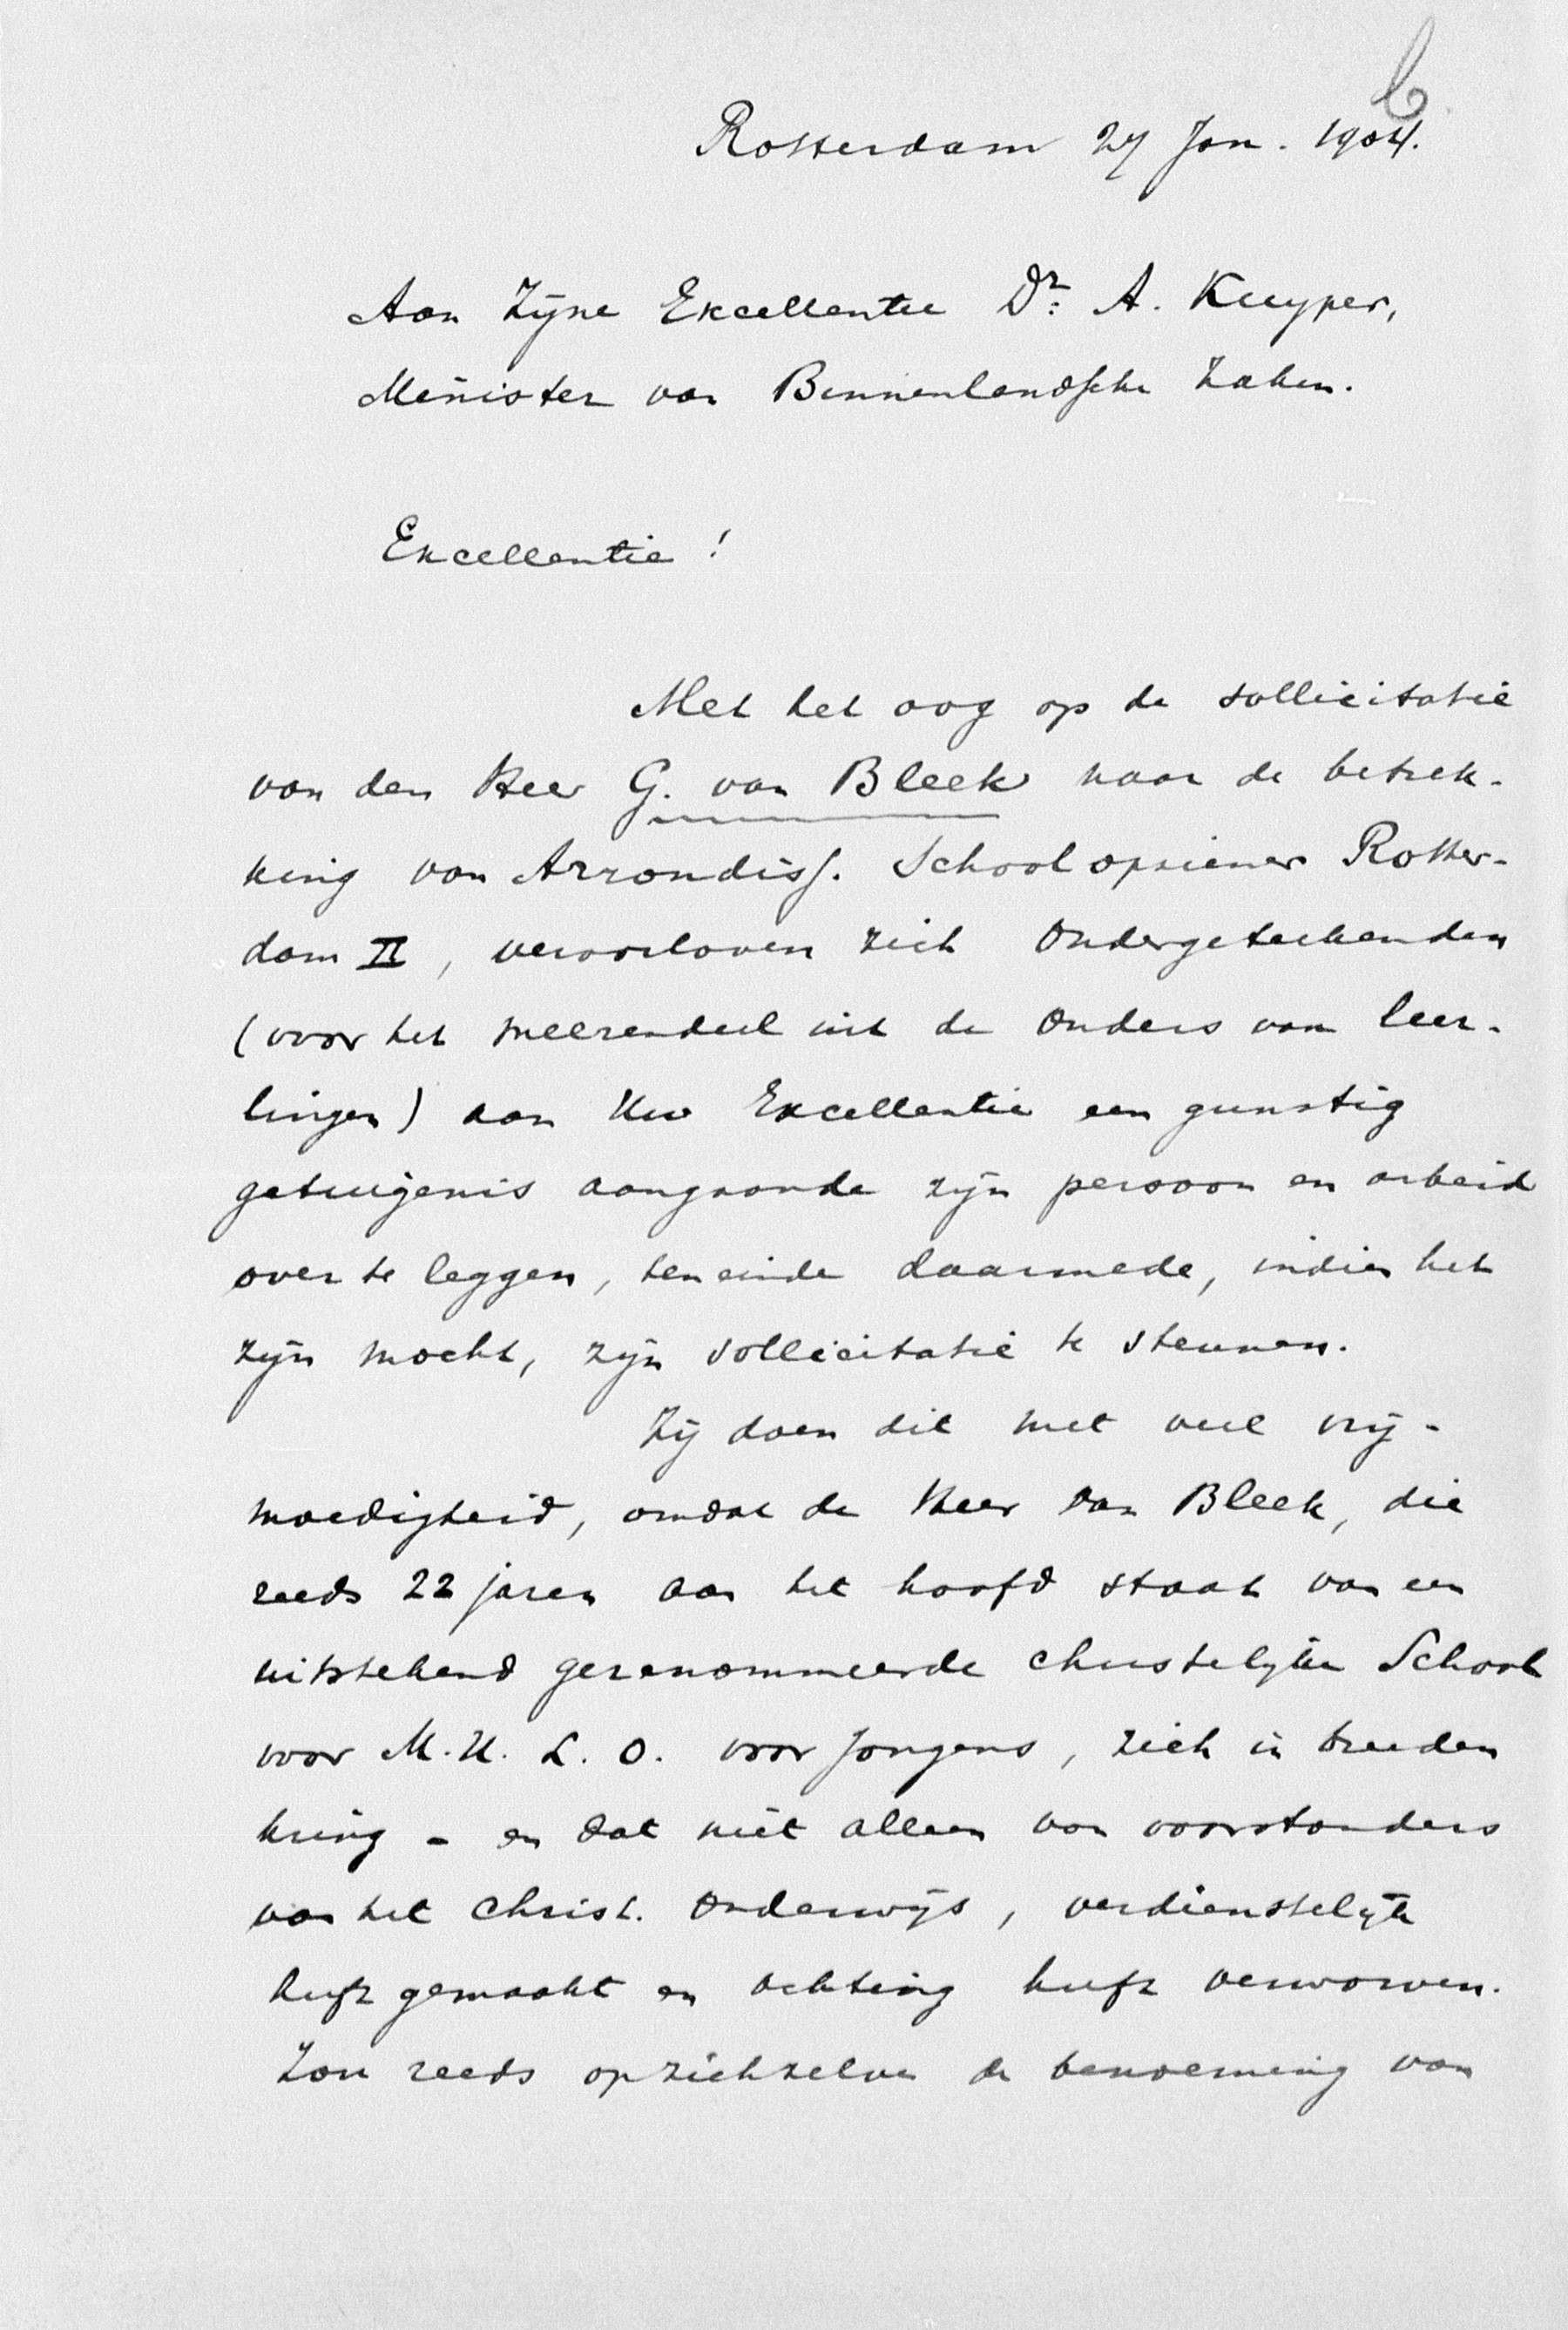 b
Rotterdam 27 Jan. 1904.
Aan Zijne Excellentie Dr. A. Kuyper,
Minister van Binnenlandsche Zaken.
Excellentie!
Met het oog op de sollicitatie
van den Heer G. van Bleek naar de betrek-
king van Arrondiss. Schoolopziener Rotter-
dam II, veroorloven zich Ondergeteekenden
(voor het meerendeel uit de Ouders van leer-
lingen) aan Uw Excellentie een gunstig
getuigenis aangaande zijn persoon en arbeid
over te leggen, ten einde daarmede, indien het
zijn mocht, zijn sollicitatie te steunen.
Zij doen dit met veel vrij-
moedigheid, omdat de Heer van Bleek, die
reeds 22 jaren aan het hoofd staat van een
uitstekend gerenommeerde christelijke School
voor M. U. L. O. voor Jongens, zich in breeden
kring - en dat niet alleen van voorstanders
van het Christ. Onderwijs, verdienstelijk
heeft gemaakt en achting heeft verworven.
Zou reeds op zichzelve de benoeming van